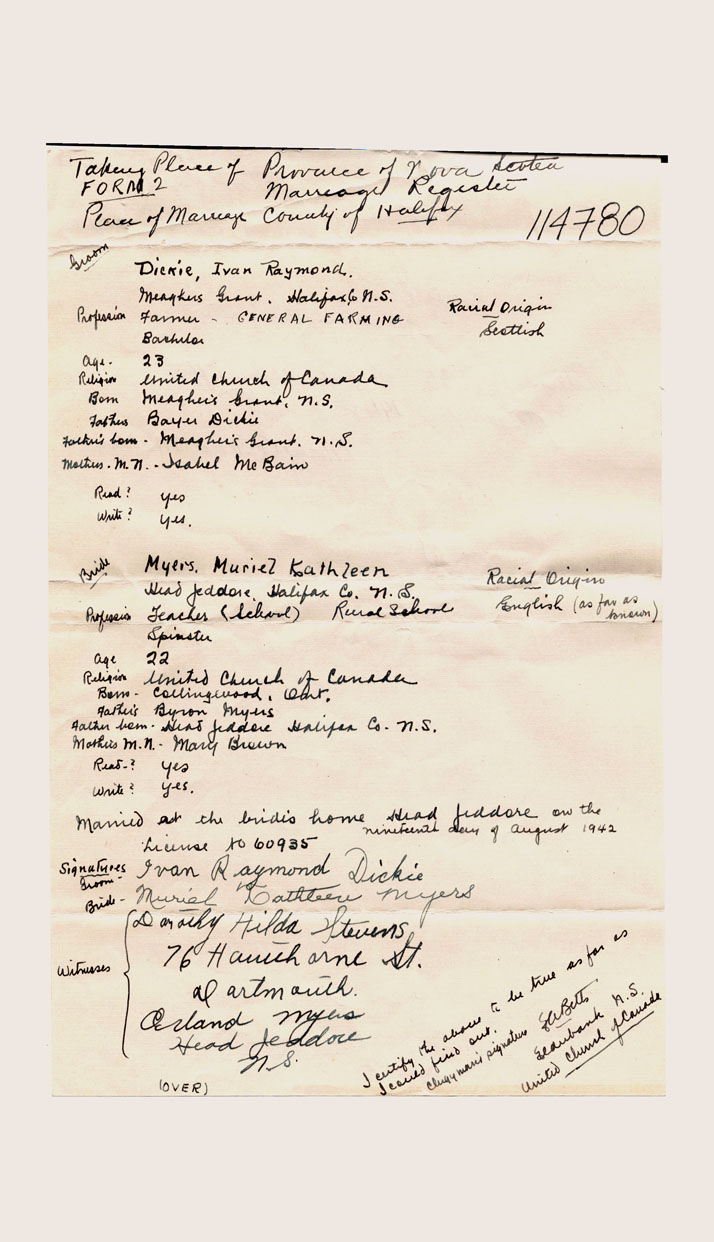 Taking Place of Province of Nova Scotia
FORM 2 Marriage Register
Place of Marriage County of Halifax
114780
Groom
Dickie, Ivan Raymond.
Meaghers Grant, Halifax Co N.S.
Racial Origin
Profession Farmer - GENERAL FARMING
Scottish
Bachelor
Age - 23
Religion United Church of Canada
Born Meagher's Grant, N.S.
Father Bayer Dickie
Father's born - Meagher's Grant. N.S.
Mothers. M.N. - Isabel McBain
Read? yes
Write? yes.
Bride Myers, Muriel Kathleen
Racial Origin
Head Jeddore, Halifax Co. N.S.
English (as far as known)
Profession Teacher (School) Rural School
Spinster
Age 22
Religion United Church of Canada
Born - Collingwood, Ont.
Father's Byron Myers
Father born - Head Jeddore Halifax Co - N.S.
Mothers M.N. - Mary Brown
Read-? yes
Write? yes.
Married at the brides home Head Jeddore on the
nineteenth day of August 1942
License No 60935
Signatures
Groom - Ivan Raymond Dickie
Bride - Muriel Kathleen Myers
Witnesses
Dorothy Hilda Stevens
76 Hawthorne St.
Dartmouth.
Orland Myers
Head Jeddore
N.S.
I certify the above to be true as far as
I could find out.
Clergyman's signature Betts
N.S.
United Church of Canada
(OVER)